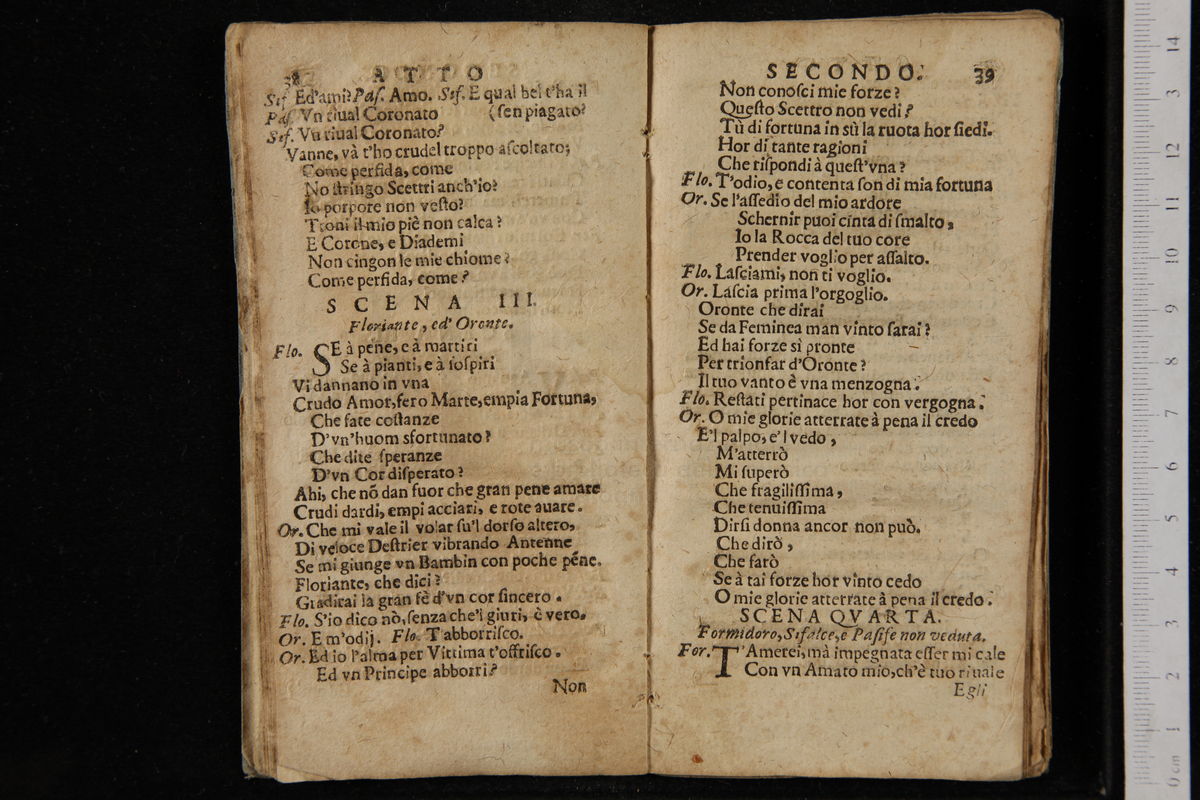 38 ATTO
Sif. Ed'ami? Pas. Amo. Sif. E qual bel t'ha il
Pas. Vn riual Coronato (sen piagato?
Sif. Vn riual Coronato?
Vanne, và t'ho crudel troppo aſcoltato;
Come perfida, come
No ſtringo Scettri anch'io?
Io porpore non veſto?
Troni il mio piè non calca?
E Corone, e Diademi
Non cingon le mie chiome?
Come perfida, come?
SCENA III.
Floriante, ed' Oronte.
Flo. SE à pene, e à martiri
Se à pianti, e à ſoſpiri
Vi dannano in vna
Crudo Amor, fero Marte, empia Fortuna,
Che fate coſtanze
D'vn'huom sfortunato?
Che dite ſperanze
D'vn Cor diſperato?
Ahi, che nõ dan fuor che gran pene amare
Crudi dardi, empi acciari, e rote auare.
Or. Che mi vale il volar ſu'l dorſo altero,
Di veloce Deſtrier vibrando Antenne
Se mi giunge vn Bambin con poche péne.
Floriante, che dici?
Gradirai la gran fè d'vn cor ſincero.
Flo. S'io dico nò, ſenza che'l giuri, è vero.
Or. E m'odij. Flo. T'abborriſco.
Or. Ed io l'alma per Vittima t'offriſco.
Ed vn Principe abborri?
Non
SECONDO. 39
Non conoſci mie forze?
Queſto Scettro non vedi?
Tù di fortuna in sù la ruota hor ſiedi.
Hor di tante ragioni
Che riſpondi à queſt'vna?
Flo. T'odio, e contenta ſon di mia fortuna
Or. Se l'aſſedio del mio ardore
Schernir puoi cinta di ſmalto,
Io la Rocca del tuo core
Prender voglio per aſſalto.
Flo. Laſciami, non ti voglio.
Or. Laſcia prima l'orgoglio.
Oronte che dirai
Se da Feminea man vinto ſarai?
Ed hai forze sì pronte
Per trionfar d'Oronte?
Il tuo vanto è vna menzogna.
Flo. Reſtati pertinace hor con vergogna.
Or. O mie glorie atterrate à pena il credo
E'l palpo, e'l vedo,
M'atterrò
Mi ſuperò
Che fragiliſſima,
Che tenuiſſima
Dirſi donna ancor non può.
Che dirò,
Che farò
Se à tai forze hor vinto cedo
O mie glorie atterrate à pena il credo.
SCENA QVARTA.
Formidoro, Sifalce, e Paſife non veduta.
For. T'Amerei, mà impegnata eſſer mi cale
Con vn Amato mio, ch'è tuo riuale
Egli